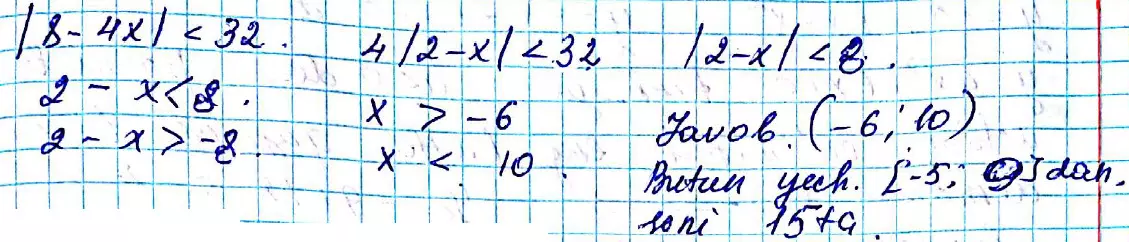 |8-4x| < 32. 4|2-x| < 32 |2-x| < 8.
2 - x < 8. x > -6 Javob. (-6; 10)
2 - x > -8. x < 10. Butun yech. [-5; 9] dan.
soni 15 ta.